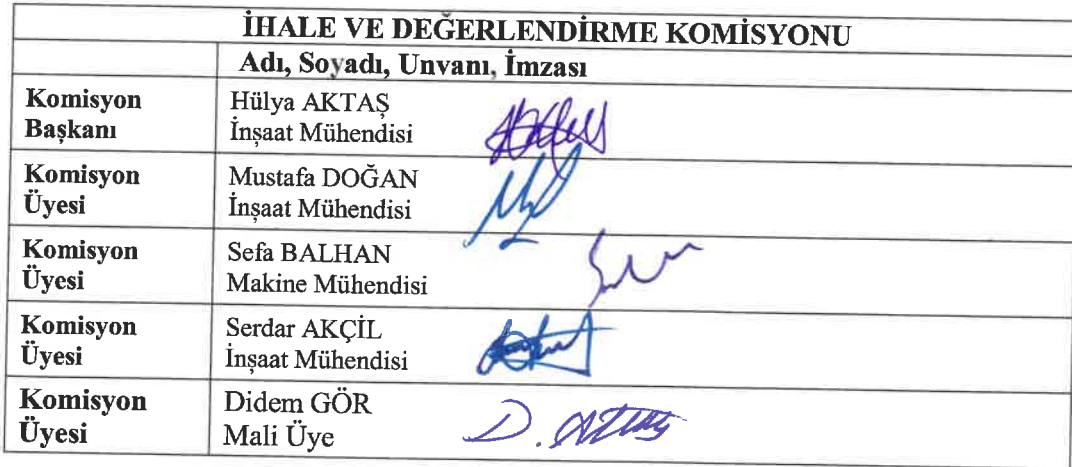 İHALE VE DEĞERLENDİRME KOMİSYONU
Adı, Soyadı, Unvanı, İmzası
Komisyon Başkanı
Hülya AKTAŞ
İnşaat Mühendisi
Komisyon Üyesi
Mustafa DOĞAN
İnşaat Mühendisi
Komisyon Üyesi
Sefa BALHAN
Makine Mühendisi
Komisyon Üyesi
Serdar AKÇİL
İnşaat Mühendisi
Komisyon Üyesi
Didem GÖR
Mali Üye
D.